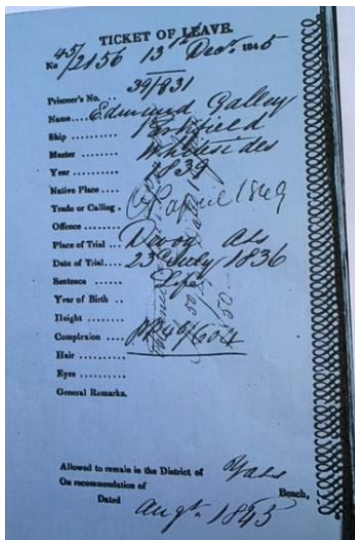 TICKET OF LEAVE.
No 45/2156 13th Decr. 1845
Prisoner's No. .. 39/831
Name.... Edmund Galley
Ship ..........
Master ....... Whiteside
Year ......... 1839
Native Place....
Trade or Calling. April 1849
Offence ........
Place of Trial... Devon
Date of Trial.... 23d July 1836
Sentence ...... Life
Year of Birth ..
Height ........
Complexion ....
Hair ..........
Eyes ..........
General Remarks.
Allowed to remain in the District of Yass
On recommendation of Bench,
Dated Augt. 1845